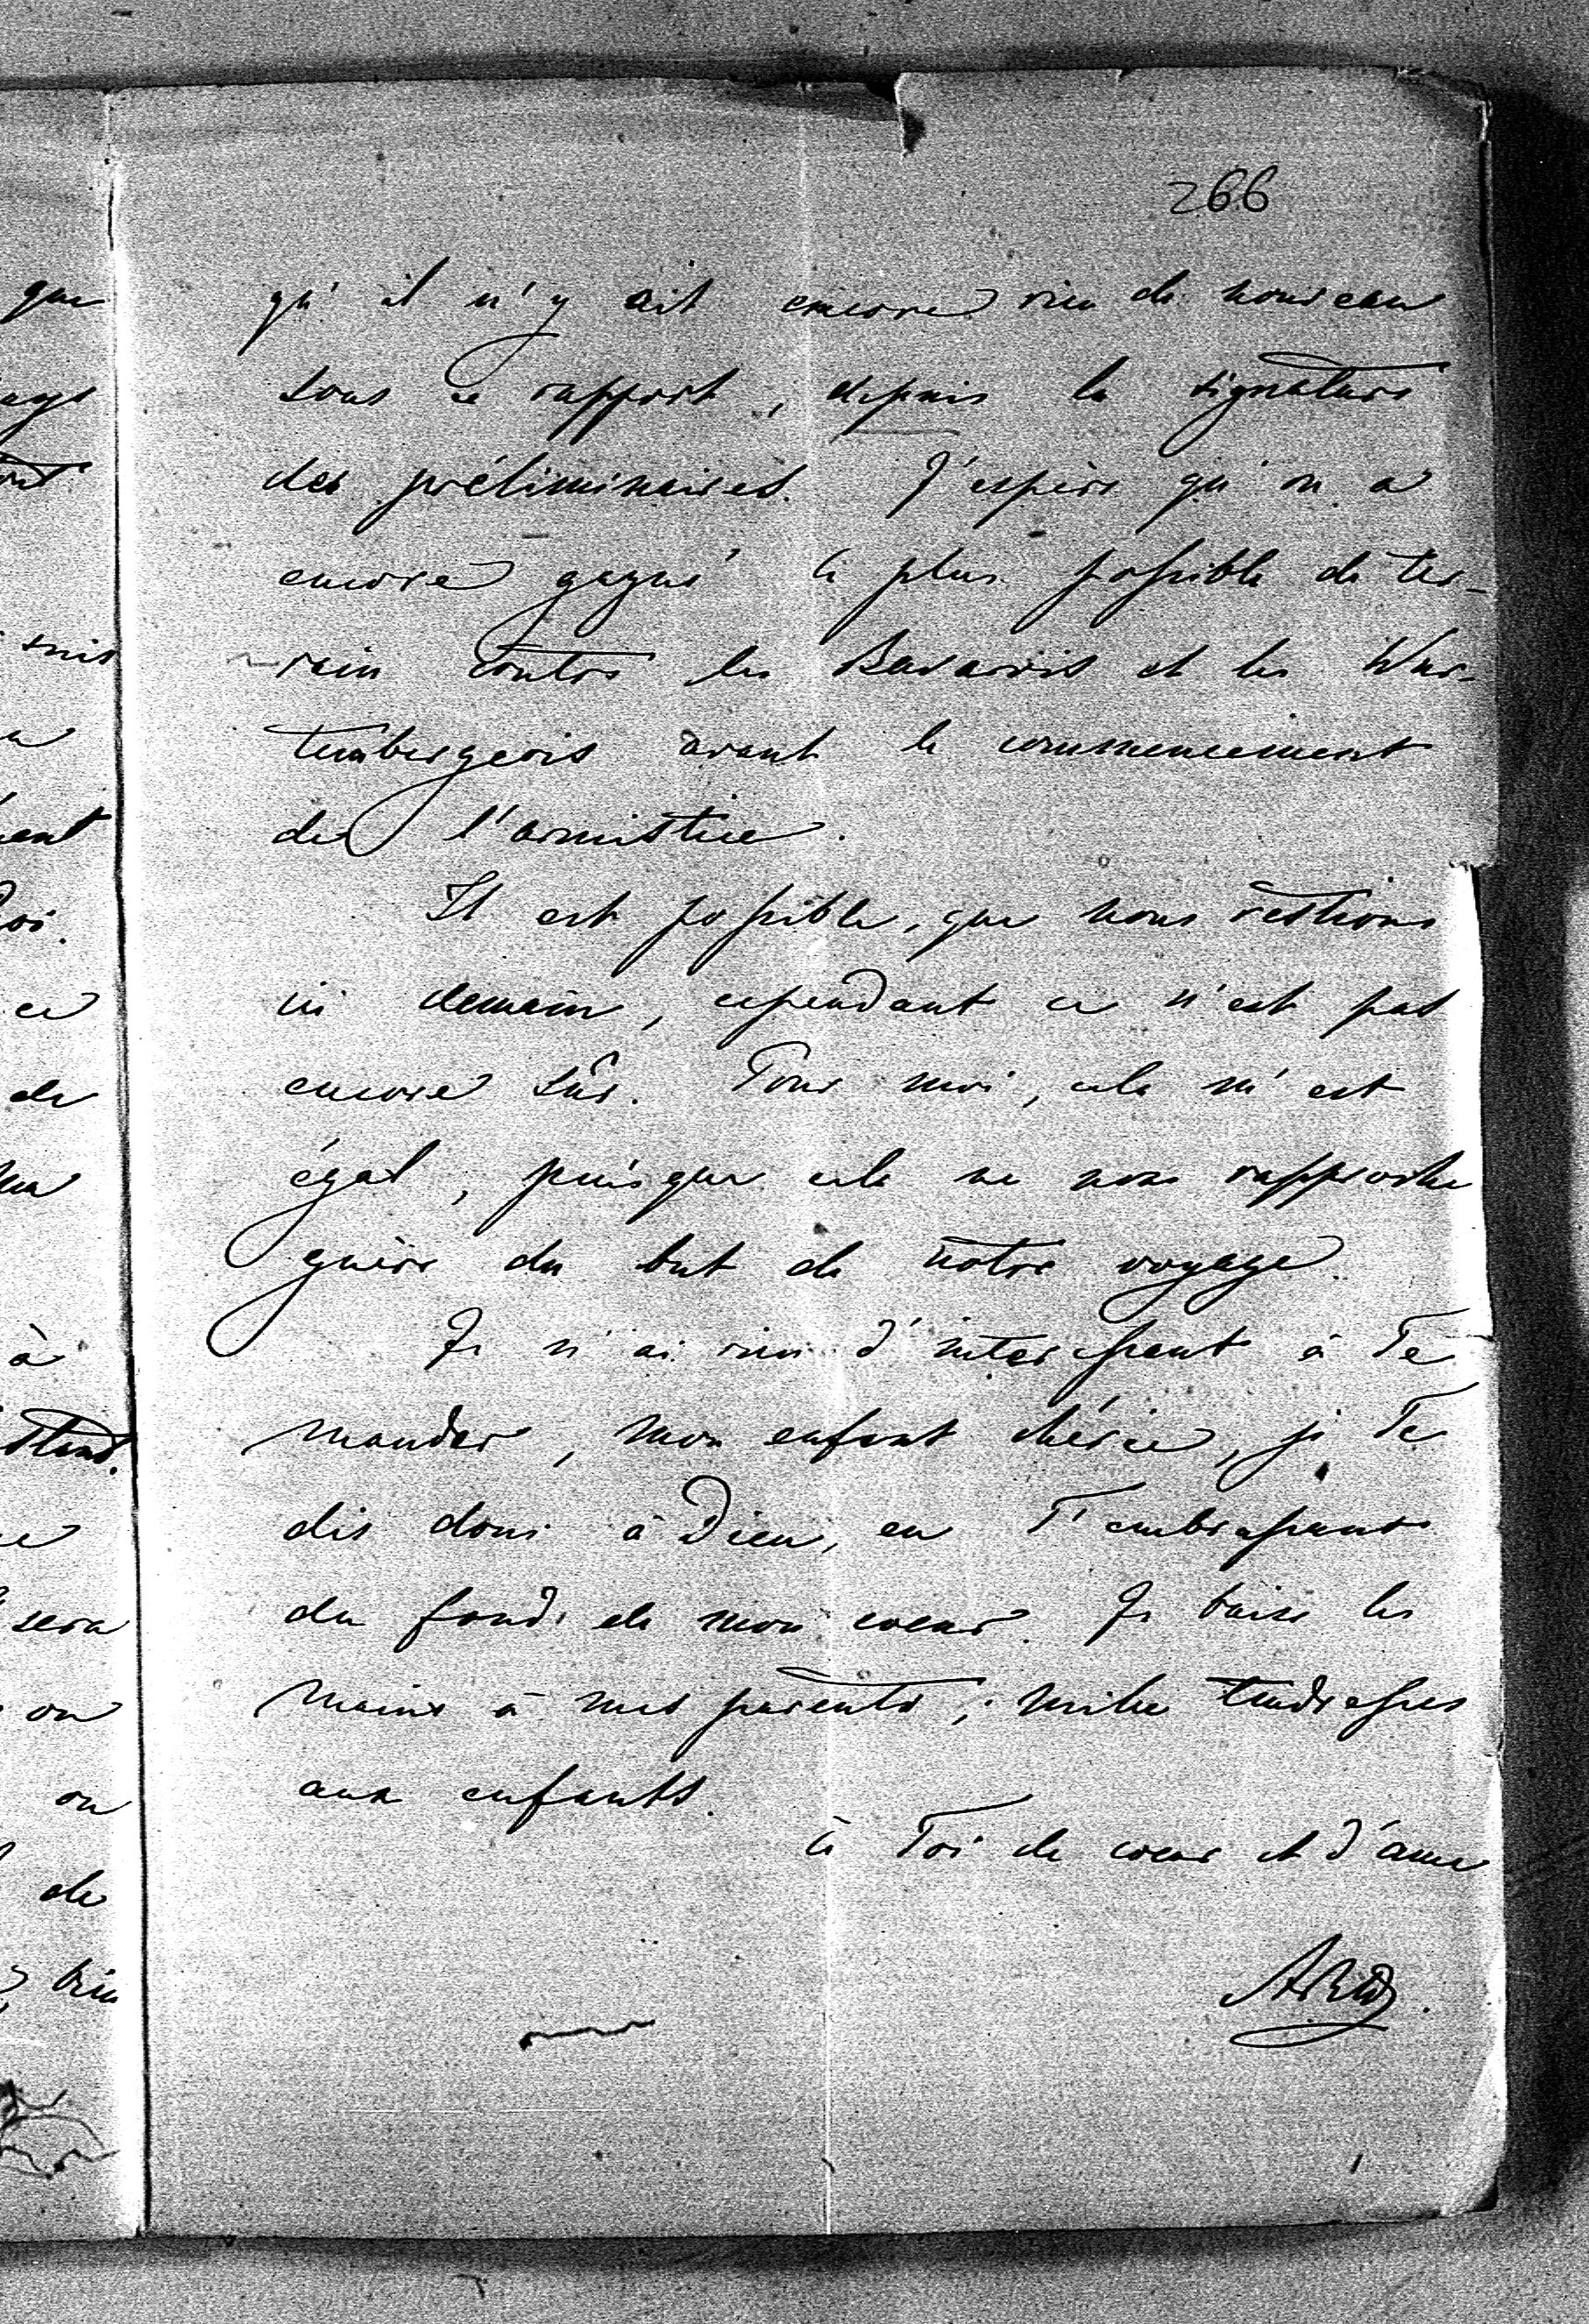 266
qu'il n'y ait encore rien de nouveau
sous ce rapport, depuis la signature
des préliminaires. J'espère qu'on a
encore gagné le plus possible de ter-
rain contre les Bavarois et les Wur-
tembergeois avant le commencement
de l'armistice.
Il est possible, que nous restions
ici demain, cependant ce n'est pas
encore sûr. Pour moi, cela m'est
égal, puisque cela ne nous rapproche
guère du but de notre voyage.
Je n'ai rien d'interessant à Te
mander, mon enfant chérie, je Te
dis donc à Dieu, en T'embrassant
du fond de mon coeur. Je baise les
mains à mes parents; mille tendresses
aux enfants.
à Toi de coeur et d'ame